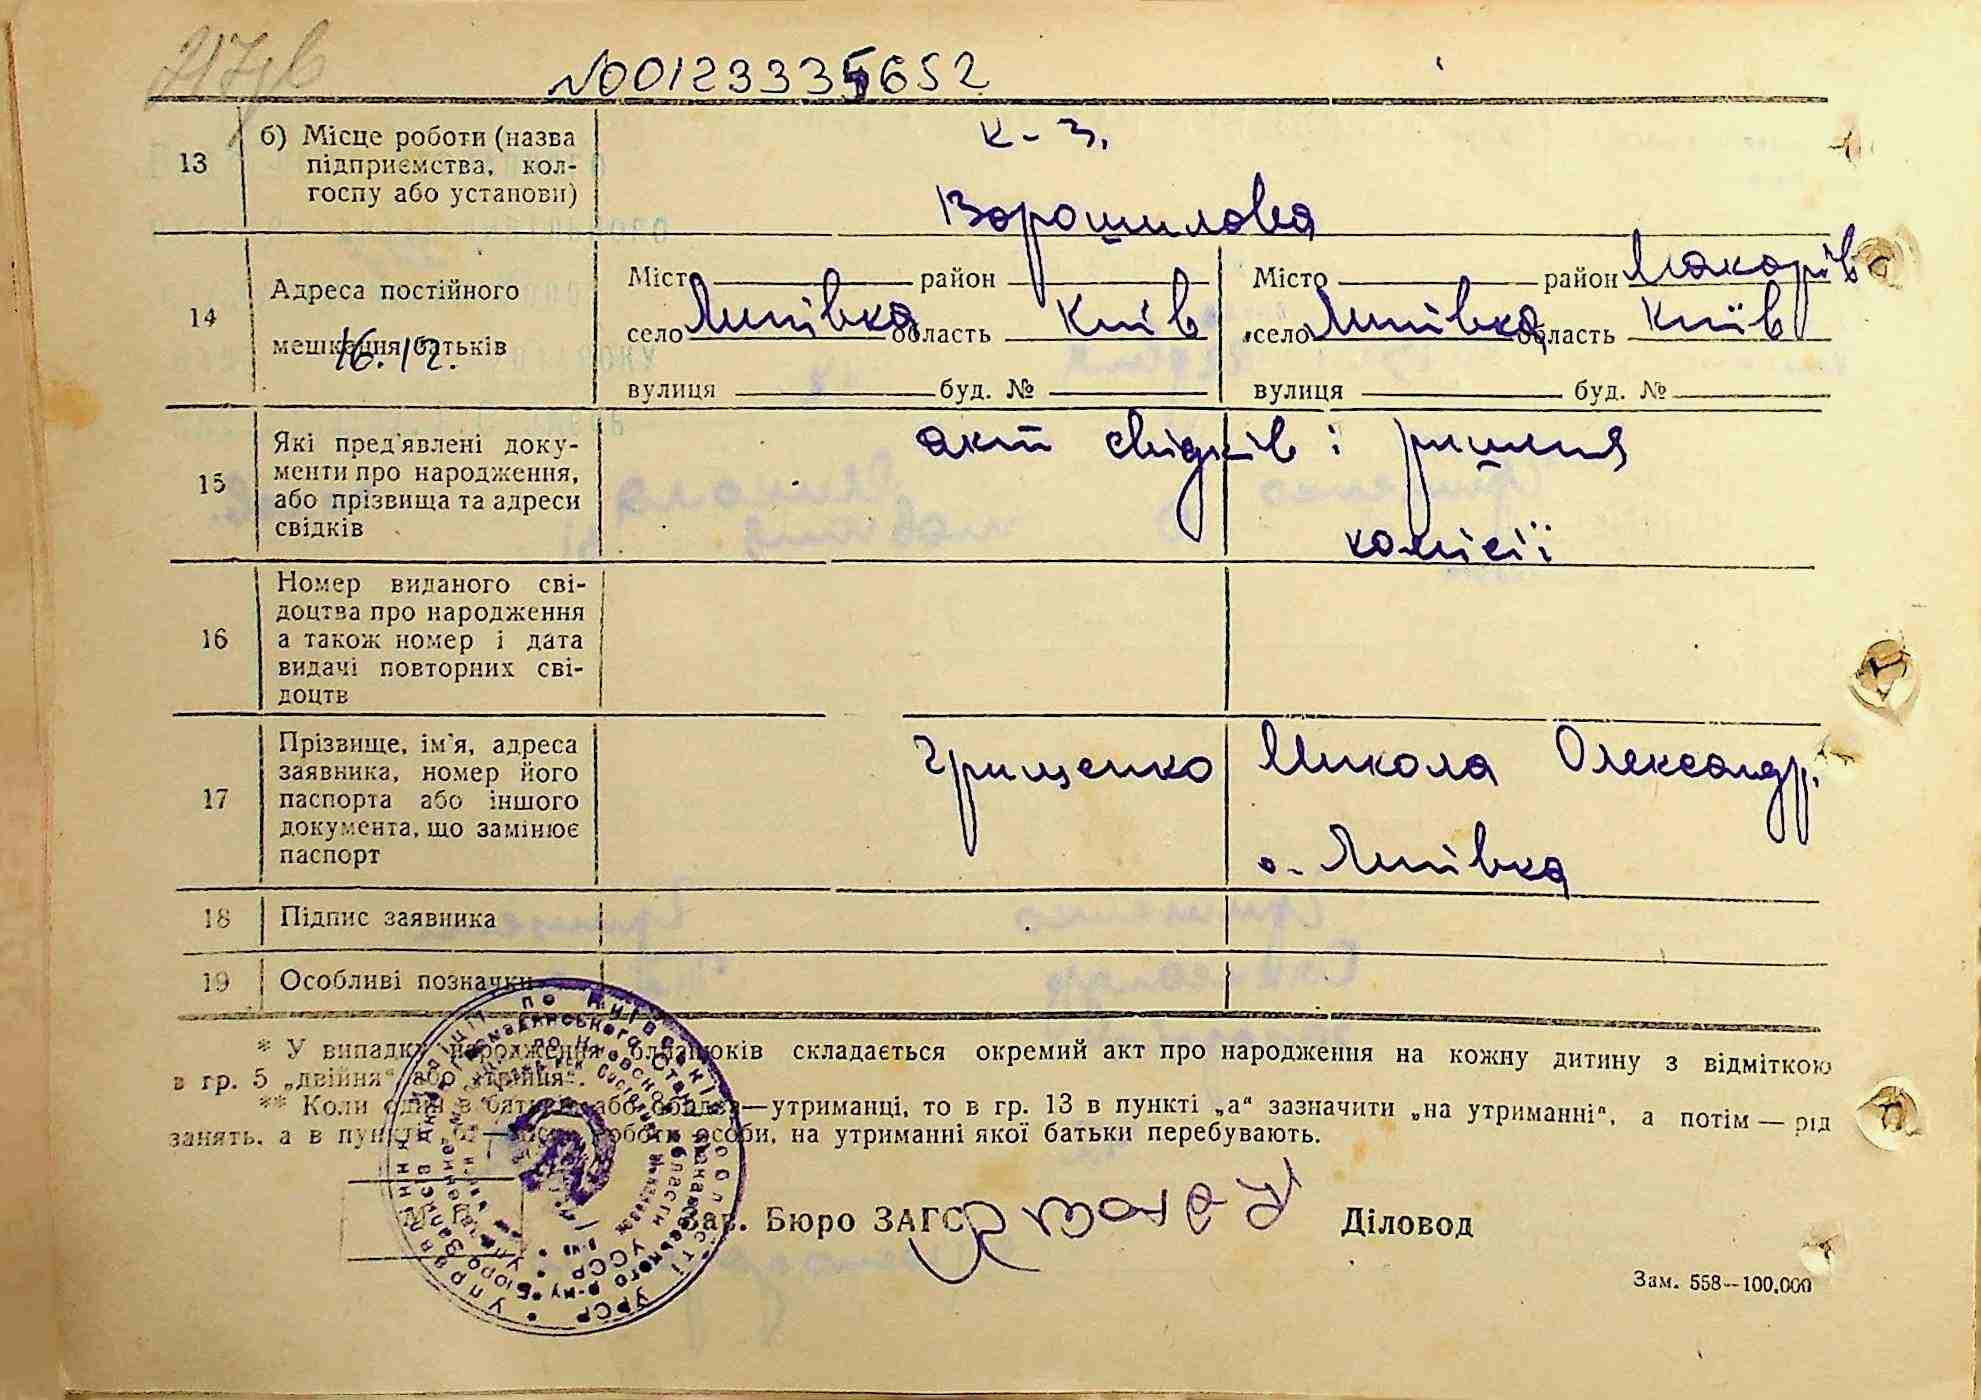 № 00123335652
13
б) Місце роботи (назва
підприємства, кол-
госпу або установи)
к-з.
Ворошилова
14
Адреса постійного
мешкання батьків
16.12.
Міст район
село Липівка область Київ
вулиця буд. №
Місто район Макарів
село Липівка область Київ
вулиця буд. №
15
Які пред'явлені доку-
менти про народження,
або прізвища та адреси
свідків
акт свідків і
комісії
16
Номер виданого сві-
доцтва про народження
а також номер і дата
видачі повторних сві-
доцтв
17
Прізвище, ім'я, адреса
заявника, номер його
паспорта або іншого
документа, що замінює
паспорт
Грищенко Микола Олександр.
с. Липівка
18
Підпис заявника
19
Особливі позначки
* У випадку народження близнюків складається окремий акт про народження на кожну дитину з відміткою
в гр. 5 „двійня“ або „трійня“.
** Коли один з батьків або обидва—утриманці, то в гр. 13 в пункті „а“ зазначити „на утриманні“, а потім — рід
занять, а в пункті „б“—місце роботи особи, на утриманні якої батьки перебувають.
Зав. Бюро ЗАГС
Діловод
Зам. 558—100.000